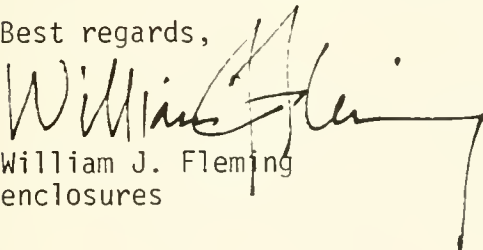 Best regards,
William J. Fleming
William J. Fleming
enclosures